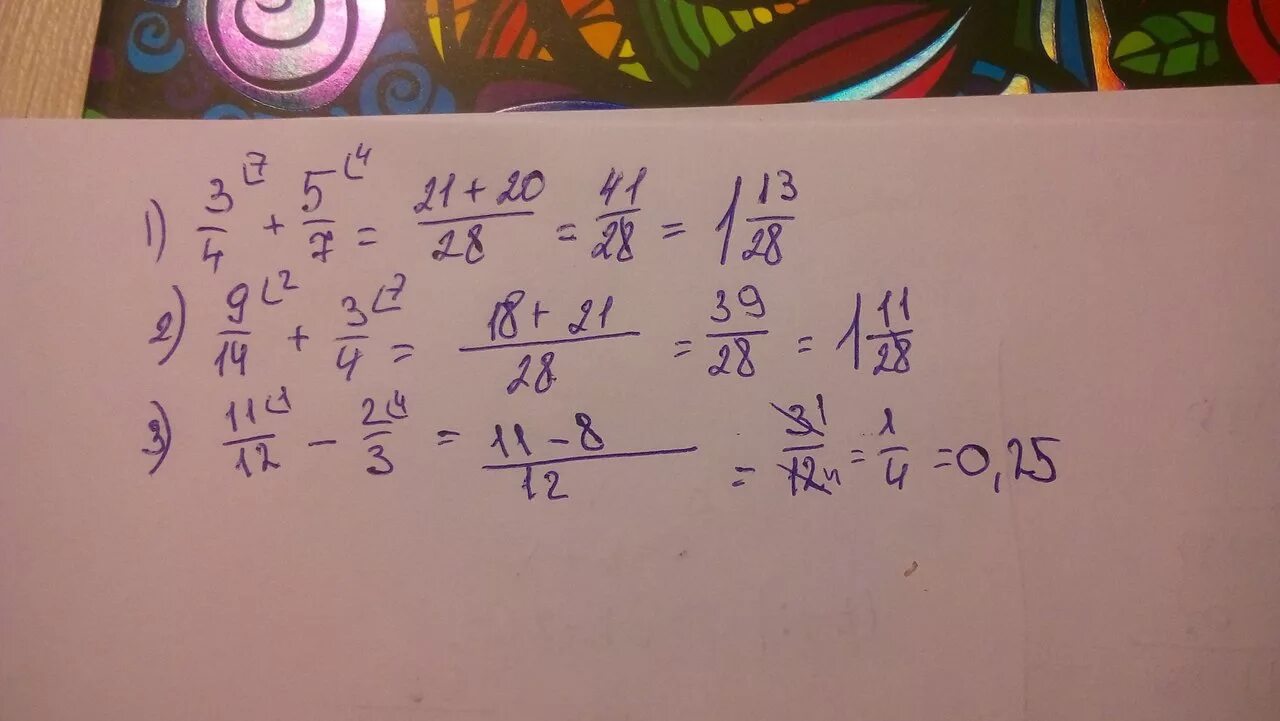 1) 3/4 ⌞7 + 5/7 ⌞4 = 21 + 20/28 = 41/28 = 1 13/28
2) 9/14 ⌞2 + 3/4 ⌞7 = 18 + 21/28 = 39/28 = 1 11/28
3) 11/12 ⌞1 - 2/3 ⌞4 = 11 - 8/12 = 3 1/12 4 = 1/4 = 0,25